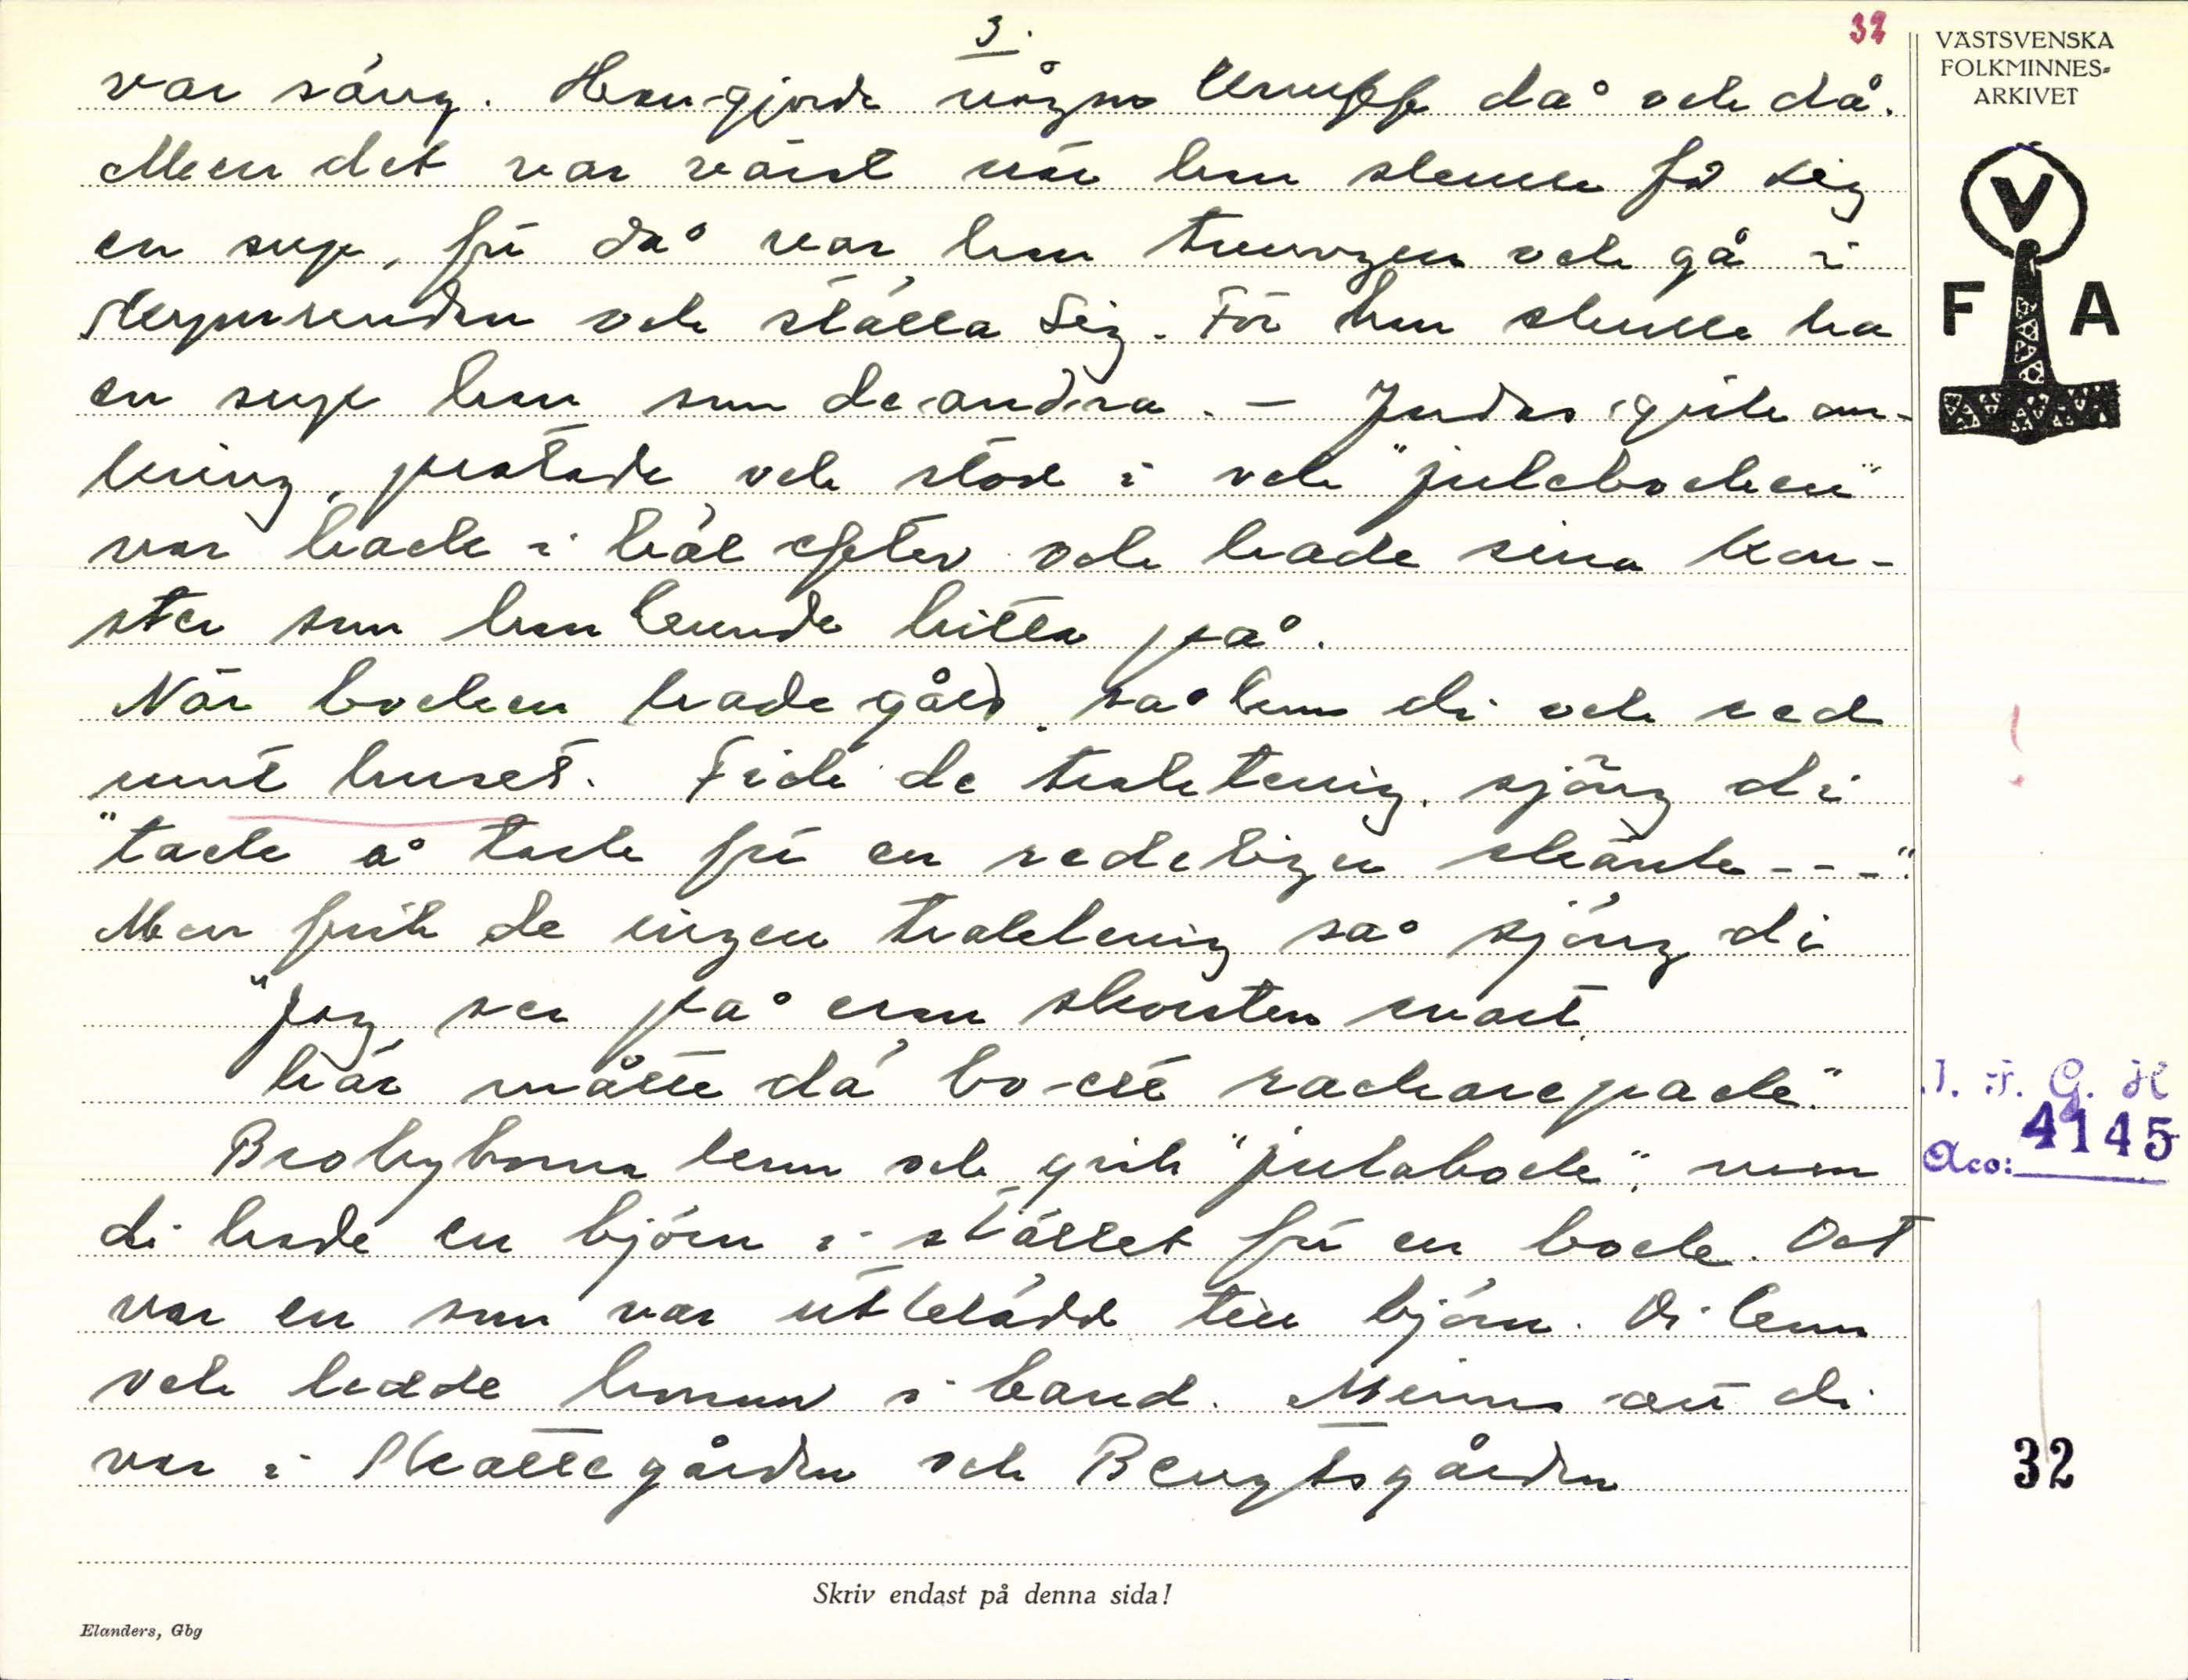 3.
32
VÄSTSVENSKA
FOLKMINNES-
ARKIVET
V
F A
var säng. Han gjorde någre knuff då och då.
Men det var värst när han skulle få sig
en sup, för då var han tvungen och gå i
skymundan och ställa sig. För han skulle ha
en sup han som de andra. – Judas gick om-
kring, pratade och stod i och "julabocken"
var hack i häl efter och hade sina kon-
ster som han kunde hitta på.
När bocken hade gått, så kom di och red
runt huset. Fick de traktering, sjöng di
"tack å tack för en redeligen skänk - - -".
Men fick de ingen traktering så sjöng di
"Jag ser på eran skorsten svart,
här måtte då bo ett rackarepack."
Brobyborna kom och gick "julabock", men
di hade en björn i stället för en bock. Det
var en som var utklädd till björn. Di kom
och ledde honom i band. Minns att di
var i Skattegården och Bengtsgården
!
I. F. G. H
Acc: 4145
32
Skriv endast på denna sida!
Elanders, Gbg